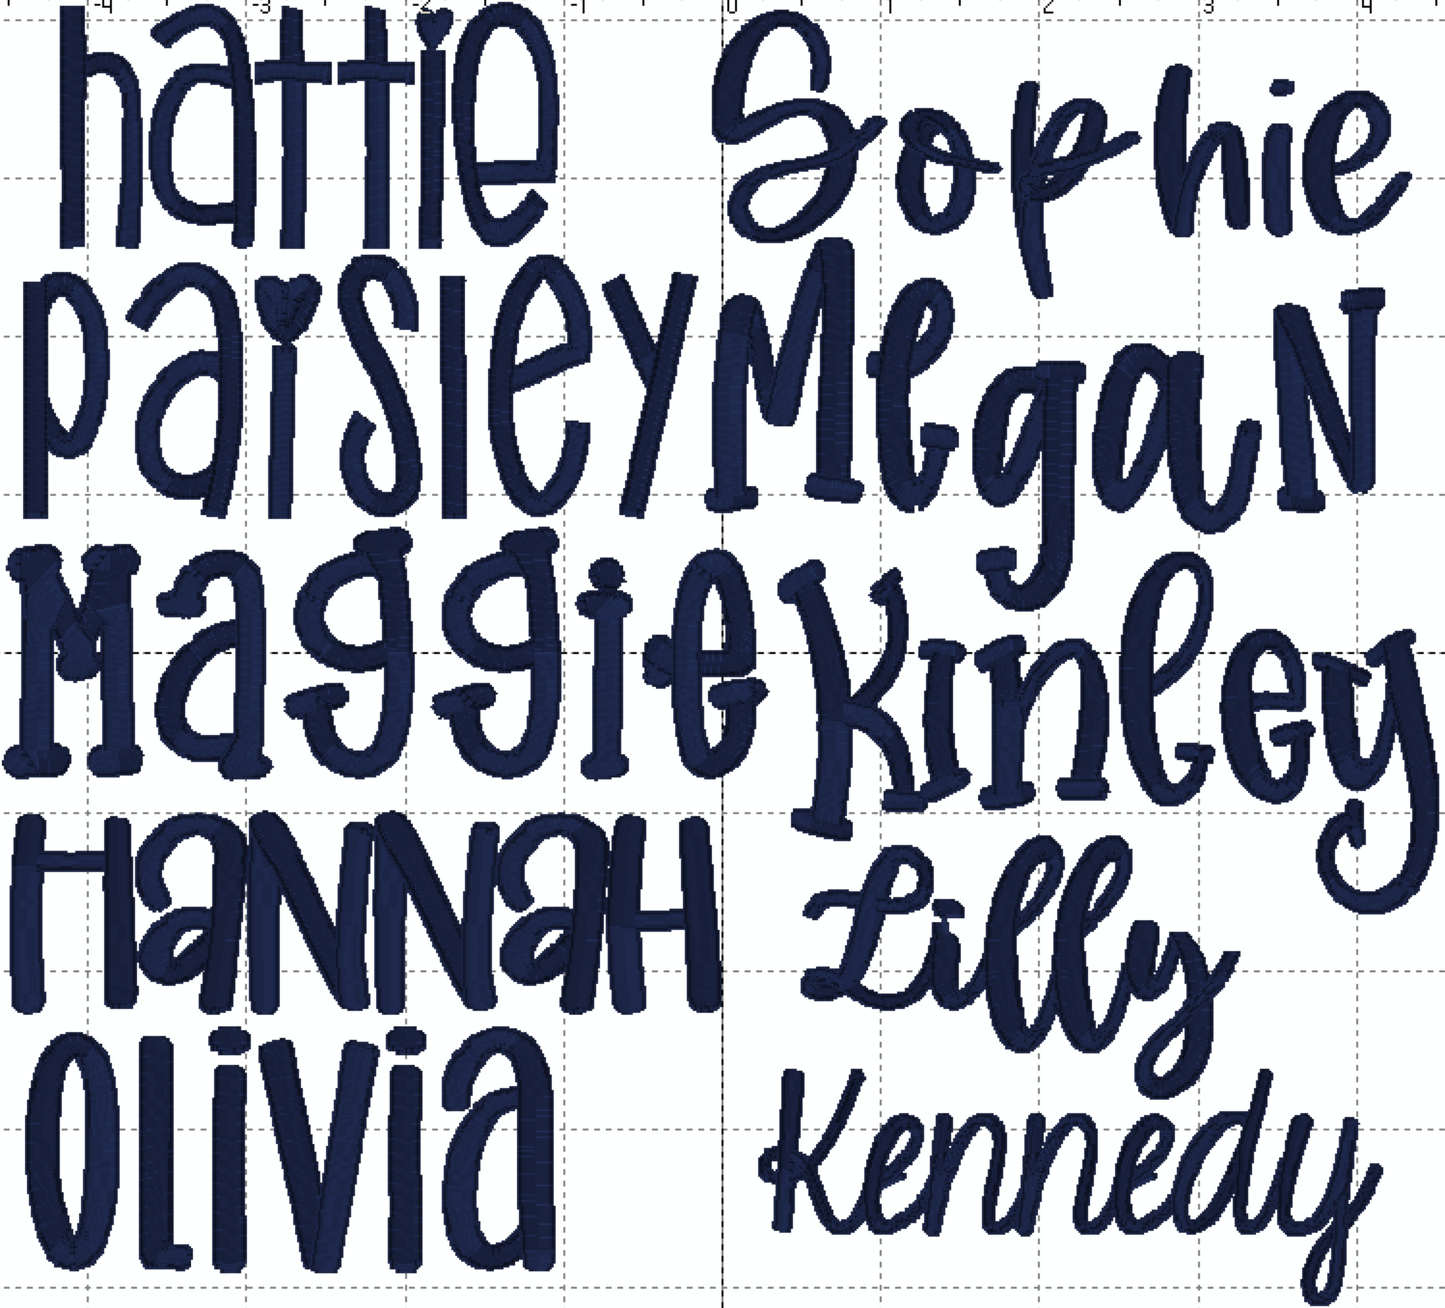 -4 -3 -2 -1 0 1 2 3 4
hattie
Sophie
paisley
MegaN
Maggie
Kinley
HaNNaH
Lilly
OLiVia
Kennedy